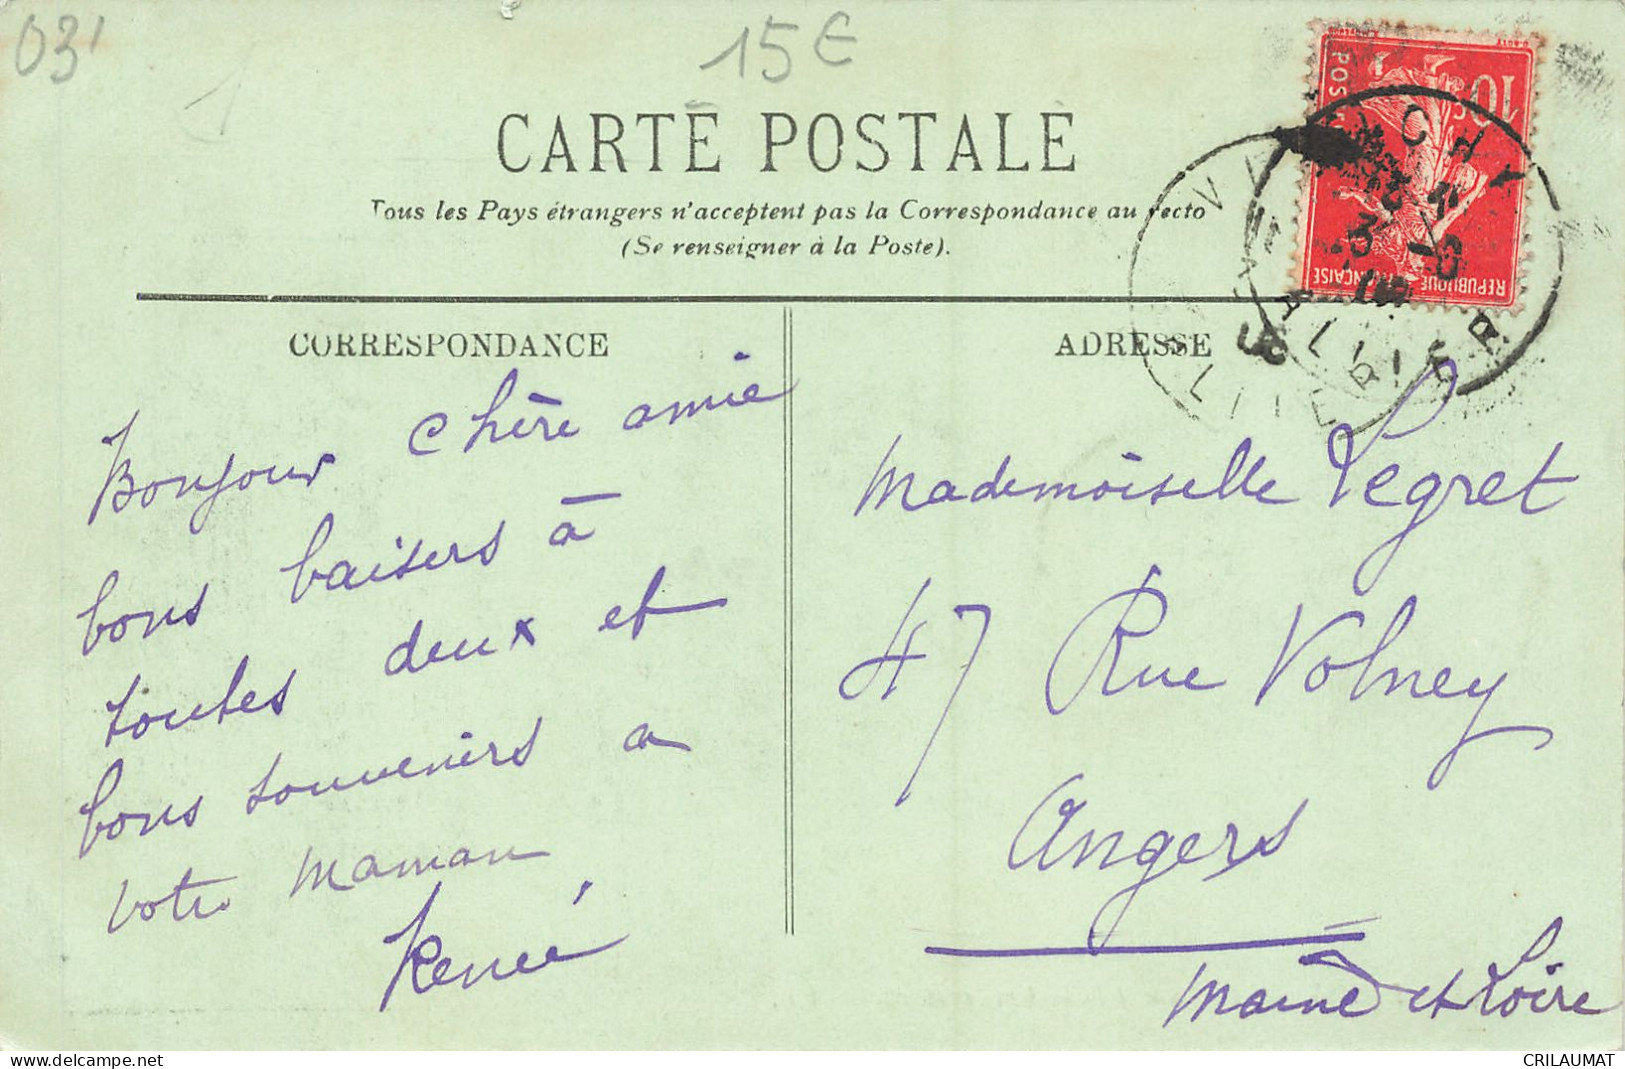 03'
15€
CARTE POSTALE
Tous les Pays étrangers n'acceptent pas la Correspondance au recto
(Se renseigner à la Poste).
CORRESPONDANCE
Bonjour chère amie
bons baisers à
toutes deux et
bons souvenirs a
votre maman
Renée
ADRESSE
Mademoiselle Legret
47 Rue Volney
Angers
Maine et Loire
10c
POSTES
REPUBLIQUE FRANÇAISE
VICHY
ALLIER
www.delcampe.net
CRILAUMAT